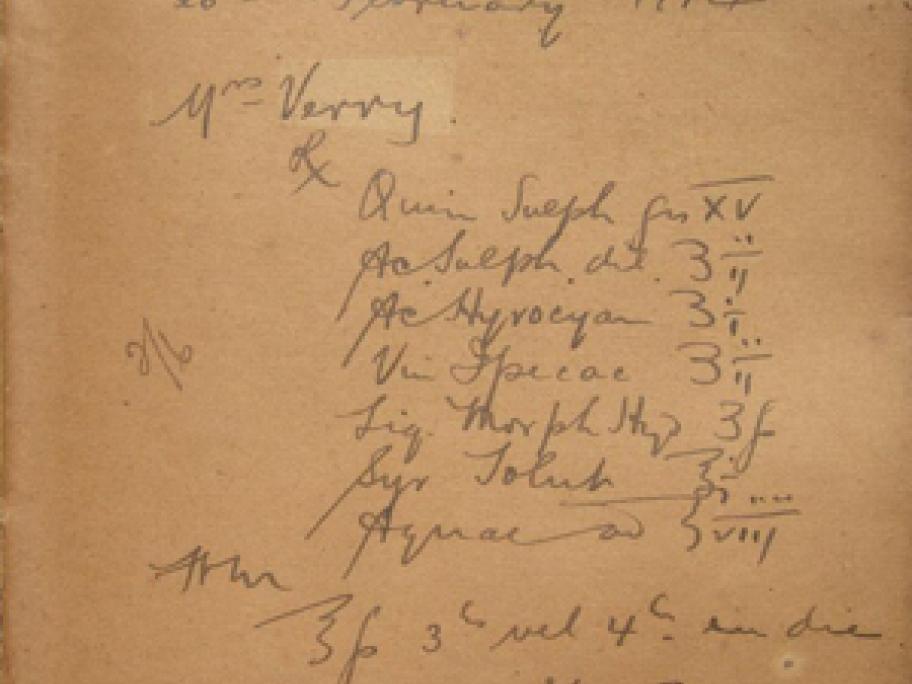 February
Mrs Verry.
℞
Quin Sulph grs XV
Ac Sulph. dil. ʒii
Ac Hyrocyan ʒi
2/6
Vin Ipecac ʒii
Liq. Morph Hyd ʒß
Syr Tolut ℥i
Aquae ad ℥viii
℥ß 3 vel 4 in die